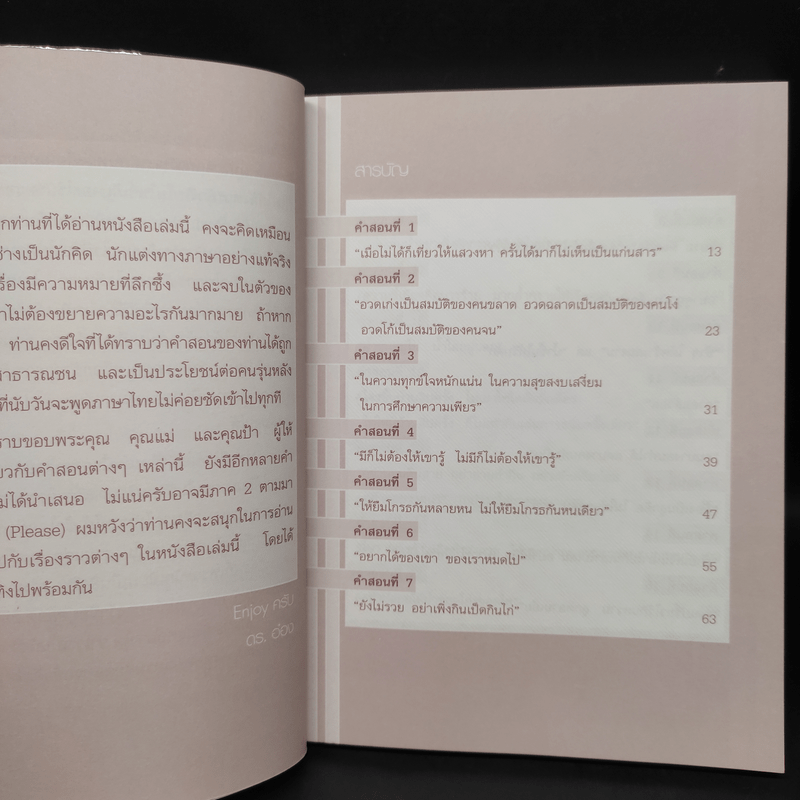 กท่านที่ได้อ่านหนังสือเล่มนี้ คงจะคิดเหมือน
ช่างเป็นนักคิด นักแต่งทางภาษาอย่างแท้จริง
รื่องมีความหมายที่ลึกซึ้ง และจบในตัวของ
าไม่ต้องขยายความอะไรกันมากมาย ถ้าหาก
ท่านคงดีใจที่ได้ทราบว่าคำสอนของท่านได้ถูก
าธารณชน และเป็นประโยชน์ต่อคนรุ่นหลัง
ที่นับวันจะพูดภาษาไทยไม่ค่อยชัดเข้าไปทุกที
ราบขอบพระคุณ คุณแม่ และคุณป้า ผู้ให้
ยวกับคำสอนต่างๆ เหล่านี้ ยังมีอีกหลายคำ
ม่ได้นำเสนอ ไม่แน่ครับอาจมีภาค 2 ตามมา
(Please) ผมหวังว่าท่านคงจะสนุกในการอ่าน
ปกับเรื่องราวต่างๆ ในหนังสือเล่มนี้ โดยได้
ทิงไปพร้อมกัน
Enjoy ครับ
ดร. อ๋อง
สารบัญ
คำสอนที่ 1
“เมื่อไม่ได้ก็เที่ยวให้แสวงหา ครั้นได้มาก็ไม่เห็นเป็นแก่นสาร” 13
คำสอนที่ 2
“อวดเก่งเป็นสมบัติของคนขลาด อวดฉลาดเป็นสมบัติของคนโง่
อวดโก้เป็นสมบัติของคนจน” 23
คำสอนที่ 3
“ในความทุกข์ใจหนักแน่น ในความสุขสงบเสงี่ยม
ในการศึกษาความเพียร” 31
คำสอนที่ 4
“มีก็ไม่ต้องให้เขารู้ ไม่มีก็ไม่ต้องให้เขารู้” 39
คำสอนที่ 5
“ให้ยืมโกรธกันหลายหน ไม่ให้ยืมโกรธกันหนเดียว” 47
คำสอนที่ 6
“อยากได้ของเขา ของเราหมดไป” 55
คำสอนที่ 7
“ยังไม่รวย อย่าเพิ่งกินเป็ดกินไก่” 63